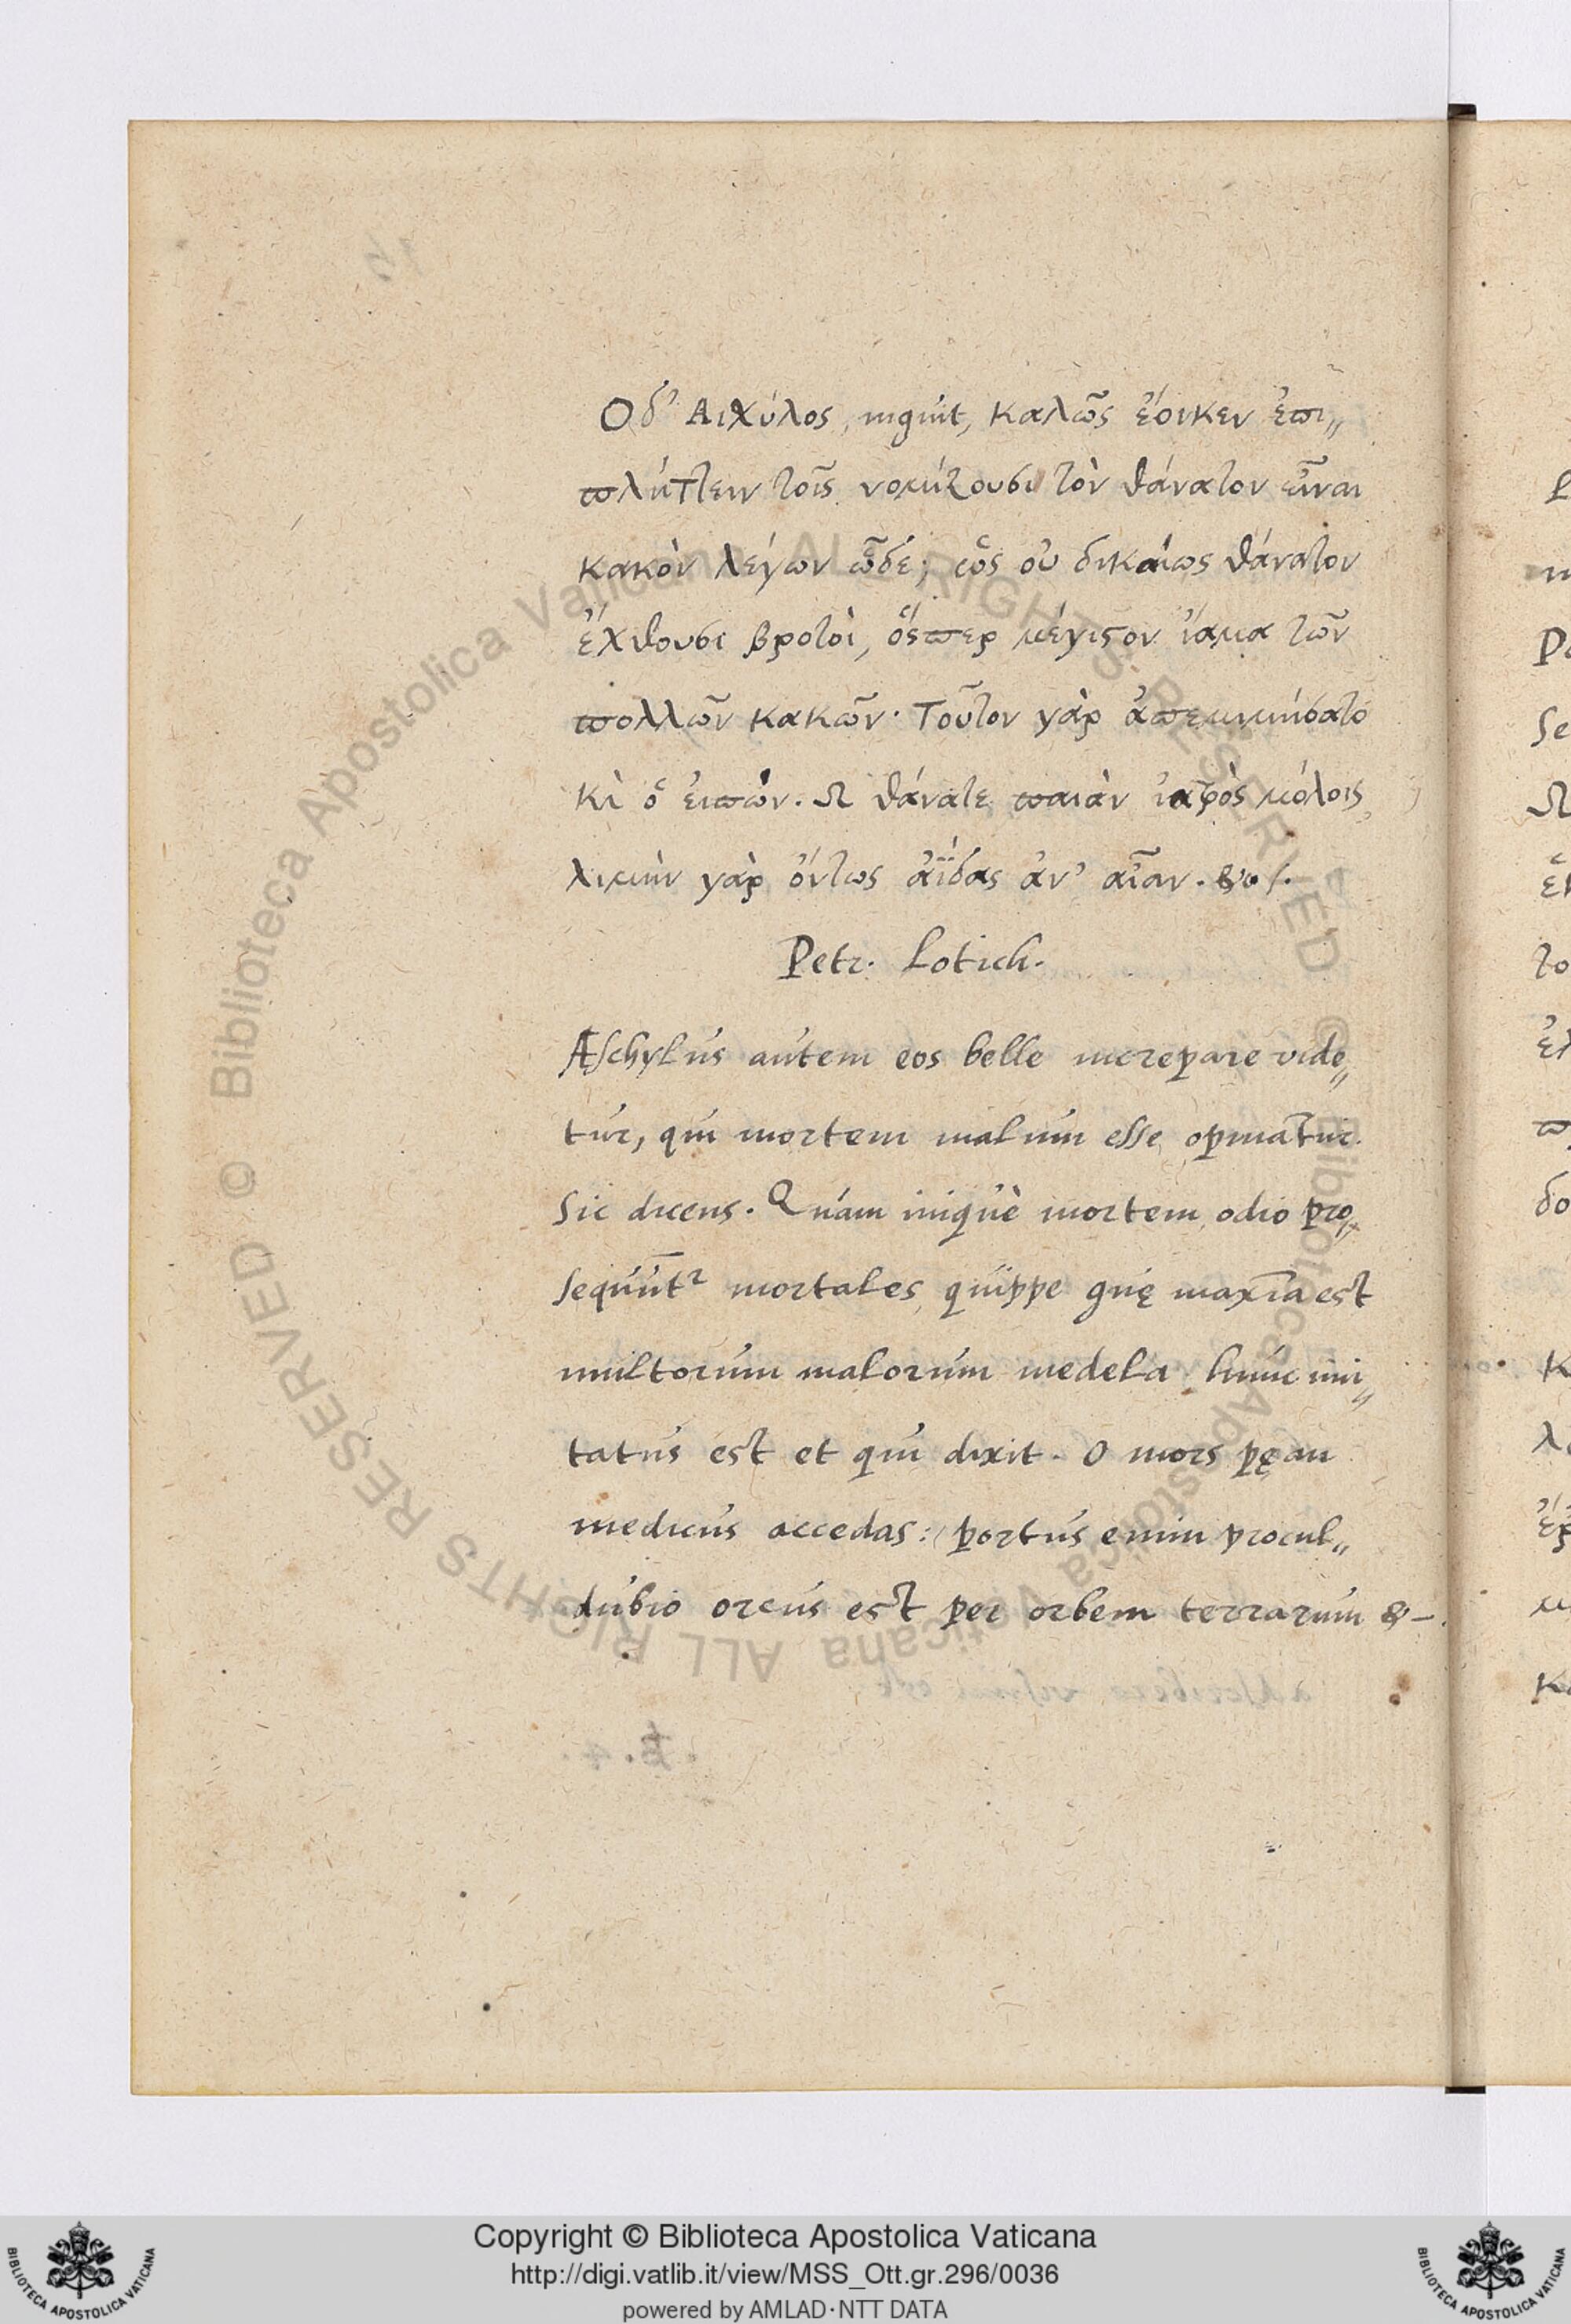 Ο δ' Αιχύλος, inquit, καλῶς ἔοικεν ἐπι„
πλήττειν τοῖς νομίζουσι τὸν θάνατον εἶναι
κακὸν λέγων ὧδέ; ὡς οὐ δικαίως θάνατον
ἔχθουσι βροτοὶ, ὅσπερ μέγιϛον ἴαμα τῶν
πολλῶν κακῶν. Τοῦτον γὰρ ἀπεμιμήσατο
κὶ ὁ εἰπών. Ω θάνατε παιὰν ἰατρὸς μόλοις
λιμὴν γὰρ ὄντως ἀΐδας ἀν' αἶαν. &c/.
Petr. Lotich.
Æschylus autem eos belle increpare vide„
tur, qui mortem malum esse opinātur.
Sic dicens. Quám iniquè mortem odio pro„
sequūtr mortales, quippe quę maxīa est
multorum malorum medela hunc imi„
tatus est et qui dixit. O mors pęan
medicus accedas: portus enim procul„
dubio orcus est per orbem terrarum &-.
Copyright © Biblioteca Apostolica Vaticana
http://digi.vatlib.it/view/MSS_Ott.gr.296/0036
powered by AMLAD·NTT DATA